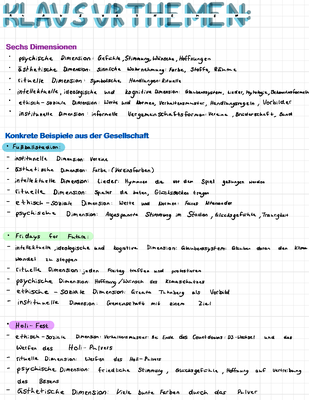 KLAUSURTHEMEN:
Sechs Dimensionen
psychische Dimension: Gefühle, Stimmung, Wünsche, Hoffnungen
ästhetische Dimension: sinnliche Wahrnehmung: Farbe, Stoffe, Räume
rituelle Dimension: Symbolische Handlungen: Rituale
intellektuelle, ideologische und kognitive Dimension: Glaubenssystem, Lieder, Mythologie,
ethisch-soziale Dimension: Werte und Normen, Verhaltensmuster, Handlungsregeln, Vorbilder
institutionelle Dimension: informelle Vergemeinschaftsformen: Vereine, Bruderschaft, Bund
Konkrete Beispiele aus der Gesellschaft
• Fußballstadion:
- institutionelle Dimension: Vereine
- ästhetische Dimension: Farbe: (Vereinsfarben)
- intellektuelle Dimension: Lieder: Hymnen die vor dem Spiel gesungen werden
- rituelle Dimension: Spieler die beten, Glückssocken tragen
- ethisch-soziale Dimension: Werte und Normen: faires Miteinander
- psychische Dimension: Angespannte Stimmung im Stadion, Glücksgefühle, Traurigkeit
• Fridays for Future:
- intellektuelle, ideologische und kognitive Dimension: Glaubenssystem: Glauben daran den Klima
wandel zu stoppen
- rituelle Dimension: jeden Freitag treffen und protestieren
- psychische Dimension: Hoffnung/Wünsche des Klimaschutzes
- ethische-soziale Dimension: Greta Thunberg als Vorbild
- institutionelle Dimension: Gemeinschaft mit einem Ziel
• Holi-Fest
- ethisch-soziale Dimension: Verhaltensmuster: Zu Ende des Countdowns: DJ-Wechsel und das
Werfen des Holi-Pulvers
- rituelle Dimension: Werfen des Holi-Pulvers
- psychische Dimension: friedliche Stimmung, Glücksgefühle, Hoffnung auf Vertreibung
des Bösens
- ästhetische Dimension: Viele bunte Farben durch das Pulver